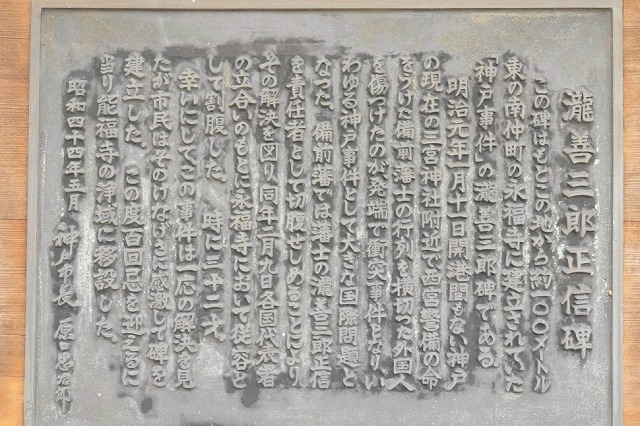 瀧善三郎正信碑
この碑はもとこの地から約一〇〇メートル
東の南仲町の永福寺に建立されていた
「神戸事件」の瀧善三郎碑である。
明治元年一月十一日開港間もない神戸
の現在の三宮神社附近で西宮警備の命
をうけた備前藩士の行列を横切った外国人
を傷つけたのが発端で衝突事件となり、い
わゆる神戸事件として大きな国際問題と
なった。備前藩では藩士の瀧善三郎正信
を責任者として切腹せしめることにより
その解決を図り、同年二月九日各国代表者
の立合いのもとに永福寺において従容と
して割腹した。時に三十二才。
幸いにしてこの事件は一応の解決を見
たが市民はそのけなげさに感激して碑を
建立した。この度百回忌を迎えるに
当り能福寺の浄域に移設した。
昭和四十四年五月 神戸市長 原口忠次郎